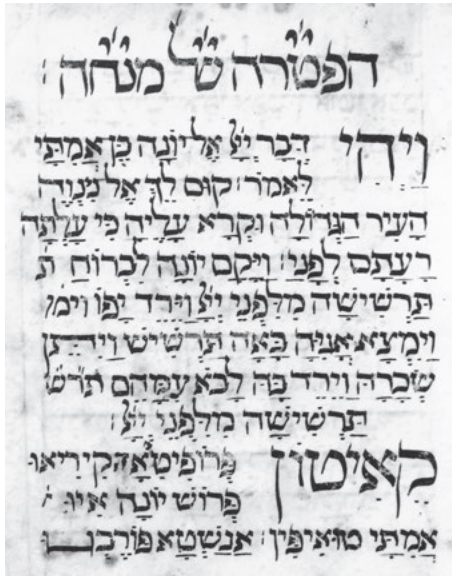 הפטרה של מנחה :
וַיְהִי דְּבַר יְיָ אֶל יוֹנָה בֶן אֲמִתַּי
לֵאמֹר׃ קוּם לֵךְ אֶל נִנְוֵה
הָעִיר הַגְּדוֹלָה וּקְרָא עָלֶיהָ כִּי עָלְתָה
רָעָתָם לְפָנָי׃ וַיָּקָם יוֹנָה לִבְרוֹחַ ת
תַּרְשִׁישָׁה מִלִּפְנֵי יְיָ וַיֵּרֶד יָפוֹ וימ
וַיִּמְצָא אֳנִיָּה בָּאָה תַּרְשִׁישׁ וַיִּתֵּן
שְׂכָרָהּ וַיֵּרֶד בָּהּ לָבֹא עִמָּהֶם תרש
תַּרְשִׁישָׁה מִלִּפְנֵי יְיָ׃
קאִיטוֹן פְּרוֹפִיטאָה קִירִיאוּ
פְּרוֹשׁ יוֹנָה איו
אֲמִתַּי טוּאִיפִּין׃ אַנַשְׁטָא